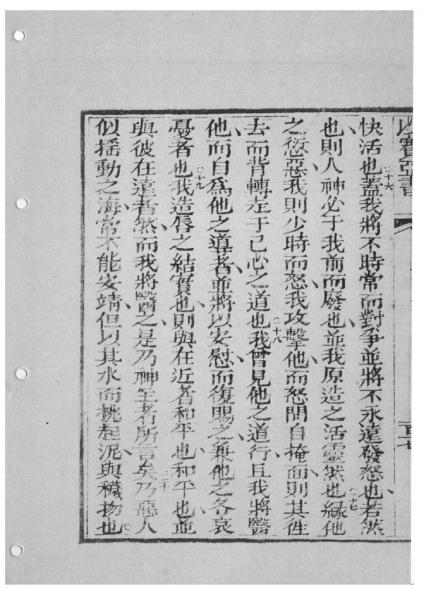 以賽亞書
快活也○十六蓋我將不時常而對爭並將不永遠發怒也若然
也則人神必于我前而廢也並我原造之活靈然也○十七緣他
之愆惡我則少時而怒我攻擊他而怒間自掩而則其徃
去而背轉于己心之道也○十八我曾見他之道行且我將醫
他而自爲他之導者並將以安慰而復賜之與他之各哀
憂者也○十九我造唇之結實也則與在近者和平也和平也並
與彼在遠者然而我將醫之是乃神主者所言矣○二十乃惡人
似搖動之海常不能安靖但以其水而挑起泥與穢物也○